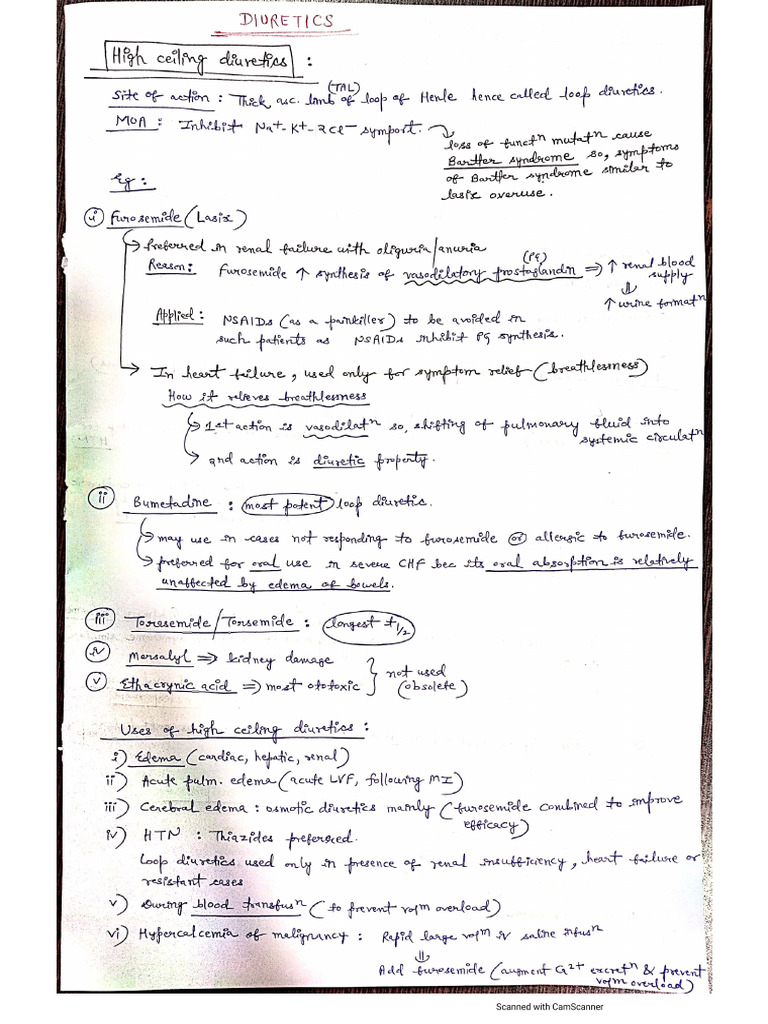 DIURETICS
High ceiling diuretics :
Site of action : Thick asc. limb of loop of Henle hence called loop diuretics.
(TAL)
MOA : Inhibit Na+- K+- 2Cl- symport.
loss of functn mutatn cause
Bartter syndrome so, symptoms
of Bartter syndrome similar to
lasix overuse.
Eg :
i Furosemide (Lasix)
Preferred in renal failure with oliguria/anuria
Reason : Furosemide ↑ synthesis of vasodilatory prostaglandin ⇒ ↑ renal blood
(PG)
supply
⇓
↑ urine formatn
Applied : NSAIDs (as a painkiller) to be avoided in
such patients as NSAIDs inhibit PG synthesis.
In heart failure, used only for symptom relief (breathlessness)
How it relieves breathlessness
1st action is vasodilatn so, shifting of pulmonary fluid into
systemic circulatn
2nd action is diuretic property.
ii Bumetadine : most potent loop diuretic.
may use in cases not responding to furosemide or allergic to furosemide.
preferred for oral use in severe CHF bec its oral absorption is relatively
unaffected by edema of bowels.
iii Toresemide/Torsemide : longest t1/2
iv Mersalyl ⇒ kidney damage
v Ethacrynic acid ⇒ most ototoxic
not used
(obsolete)
Uses of high ceiling diuretics :
i) Edema (cardiac, hepatic, renal)
ii) Acute pulm. edema (acute LVF, following MI)
iii) Cerebral edema : osmotic diuretics mainly (furosemide combined to improve
efficacy)
iv) HTN : Thiazides preferred.
Loop diuretics used only in presence of renal insufficiency, heart failure or
resistant cases
v) During blood transfusn (to prevent volm overload)
vi) Hypercalcemia of malignancy : Rapid large volm iv saline infusn
⇓
Add furosemide (augment Ca2+ excretn & prevent
volm overload)
Scanned with CamScanner